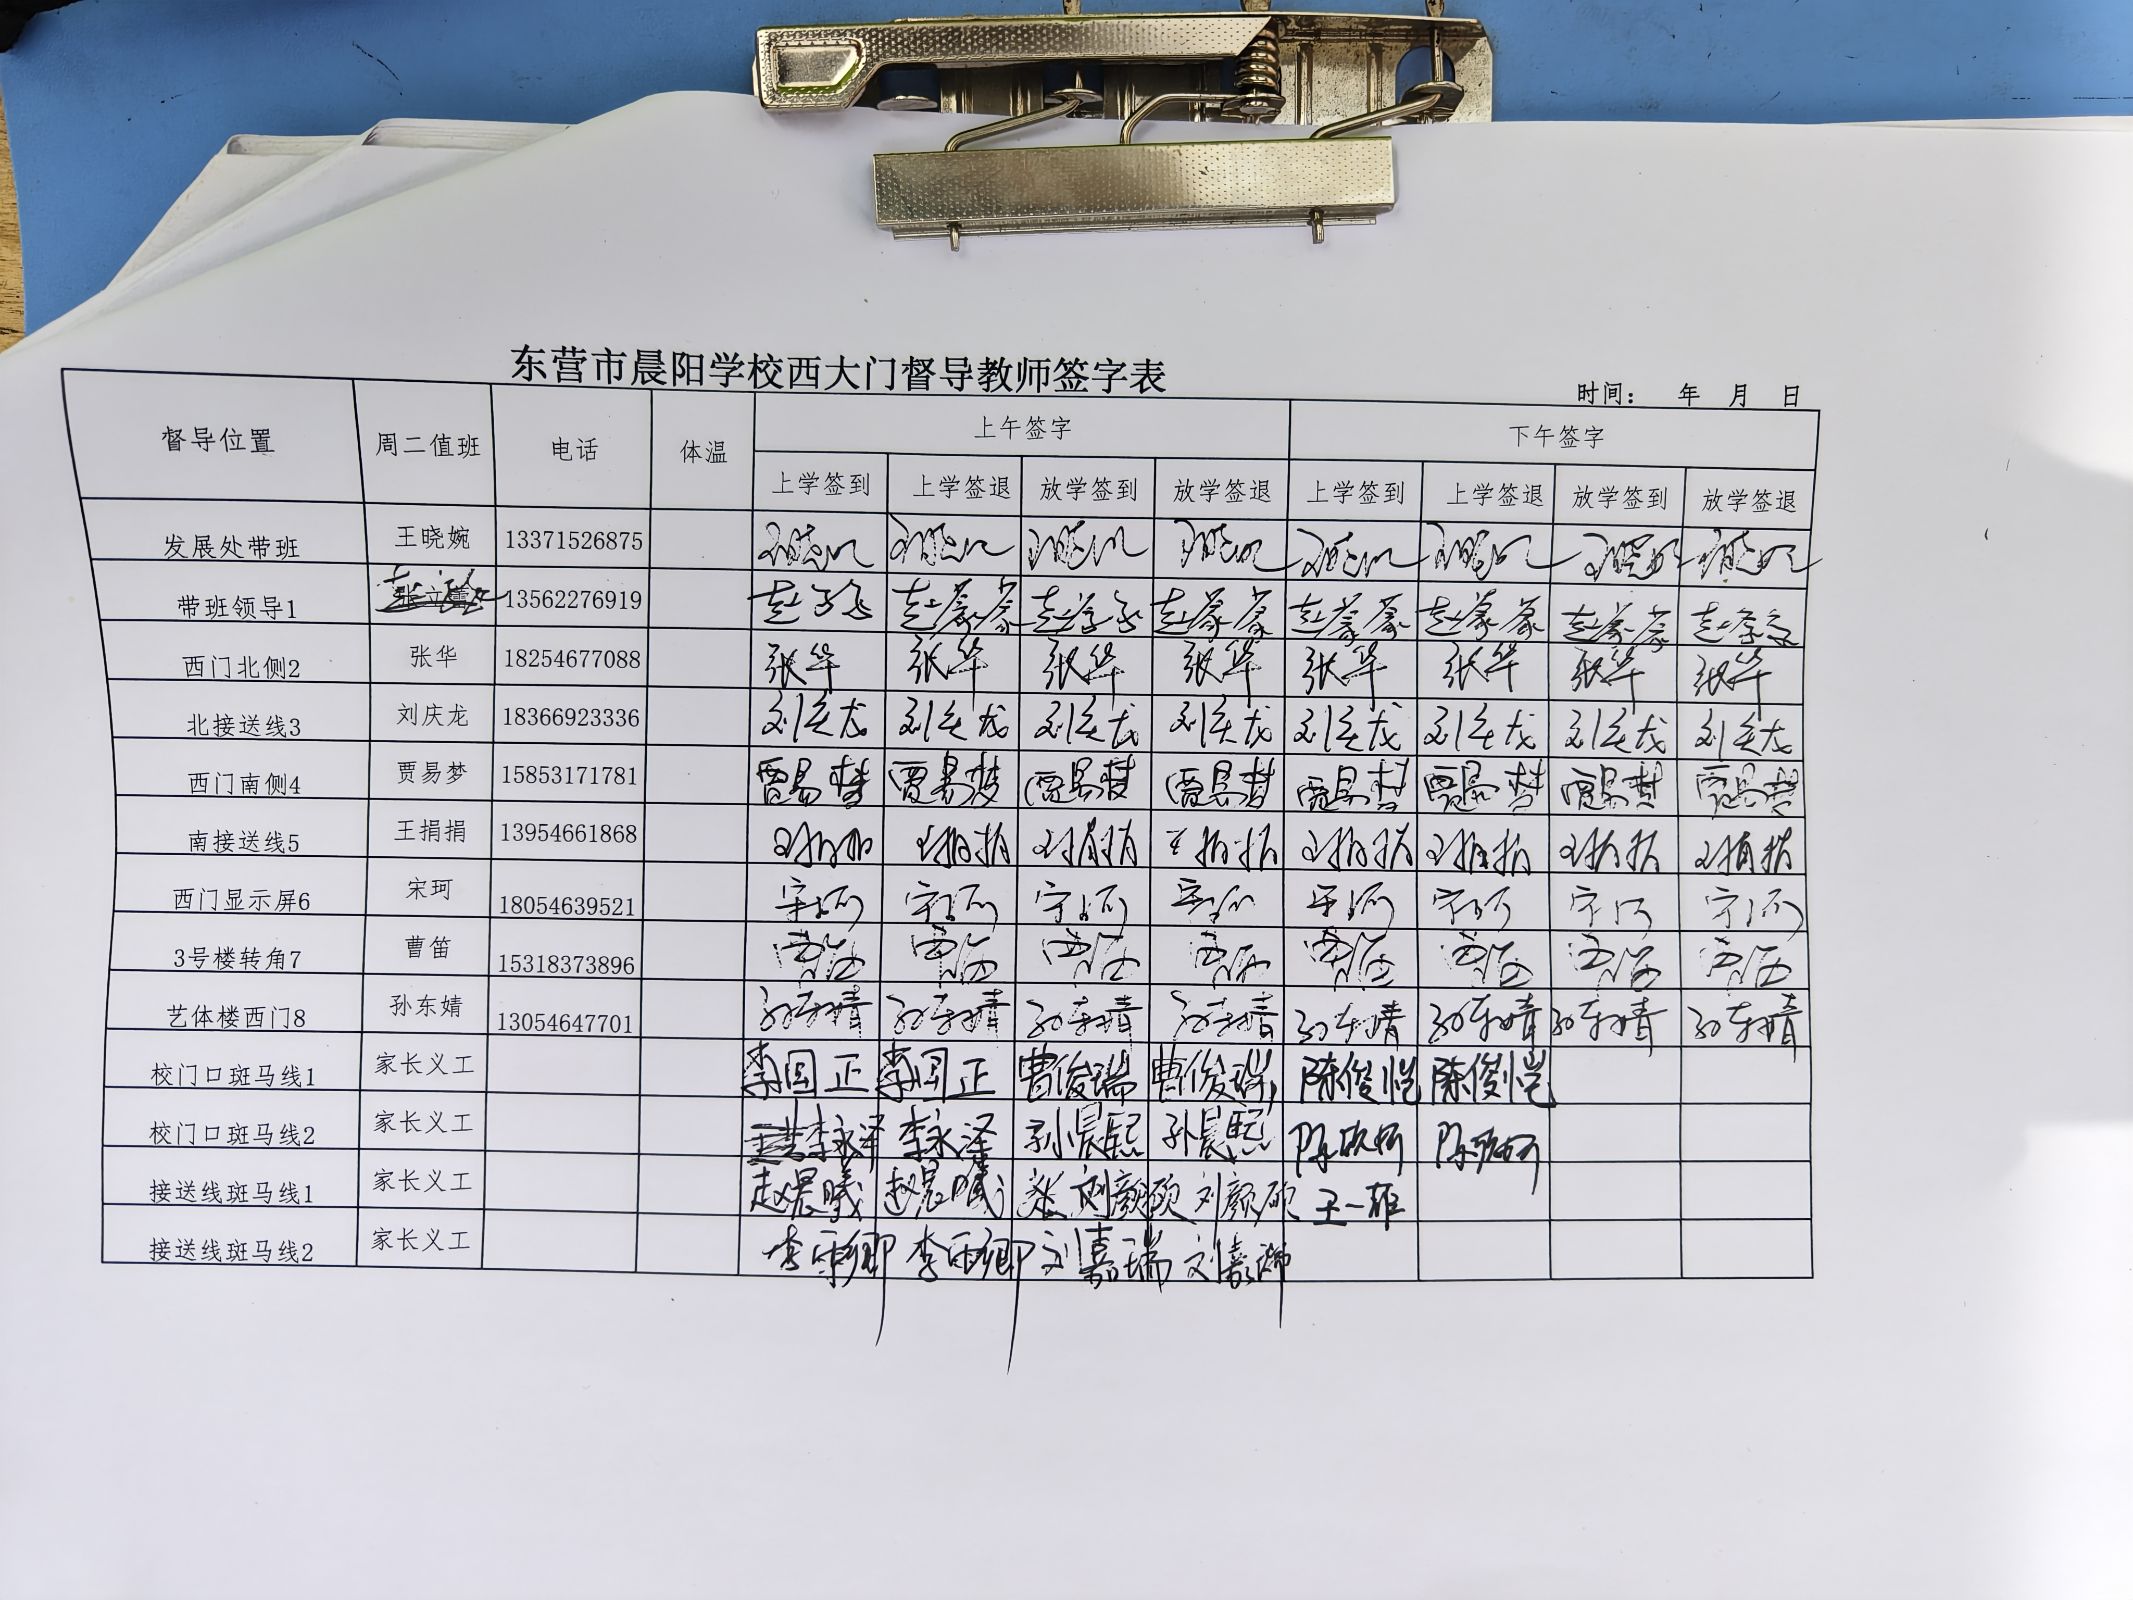 东营市晨阳学校西大门督导教师签字表
时间： 年 月 日
督导位置 周二值班 电话 体温 上午签字 下午签字
上学签到 上学签退 放学签到 放学签退 上学签到 上学签退 放学签到 放学签退
发展处带班 王晓婉 13371526875
带班领导1 13562276919 赵蒙蒙 赵蒙蒙 赵蒙蒙 赵蒙蒙 赵蒙蒙
西门北侧2 张华 18254677088 张华 张华 张华 张华 张华 张华 张华 张华
北接送线3 刘庆龙 18366923336 刘庆龙 刘庆龙 刘庆龙 刘庆龙 刘庆龙 刘庆龙 刘庆龙 刘庆龙
西门南侧4 贾易梦 15853171781 贾易梦 贾易梦 贾易梦 贾易梦 贾易梦 贾易梦 贾易梦 贾易梦
南接送线5 王捐捐 13954661868 王捐捐 王捐捐 王捐捐 王捐捐 王捐捐 王捐捐 王捐捐 王捐捐
西门显示屏6 宋珂 18054639521 宋珂 宋珂 宋珂 宋珂 宋珂 宋珂 宋珂 宋珂
3号楼转角7 曹笛 15318373896
艺体楼西门8 孙东婧 13054647701 孙东婧 孙东婧 孙东婧 孙东婧 孙东婧 孙东婧 孙东婧 孙东婧
校门口斑马线1 家长义工 李国正 李国正 曹俊瑞 曹俊瑞 陈俊恺 陈俊恺
校门口斑马线2 家长义工 李永泽 李永泽 孙晨熙 孙晨熙
接送线斑马线1 家长义工 赵晨曦 赵晨曦 刘颜硕 刘颜硕 王一雅
接送线斑马线2 家长义工 刘嘉瑞 刘嘉瑞